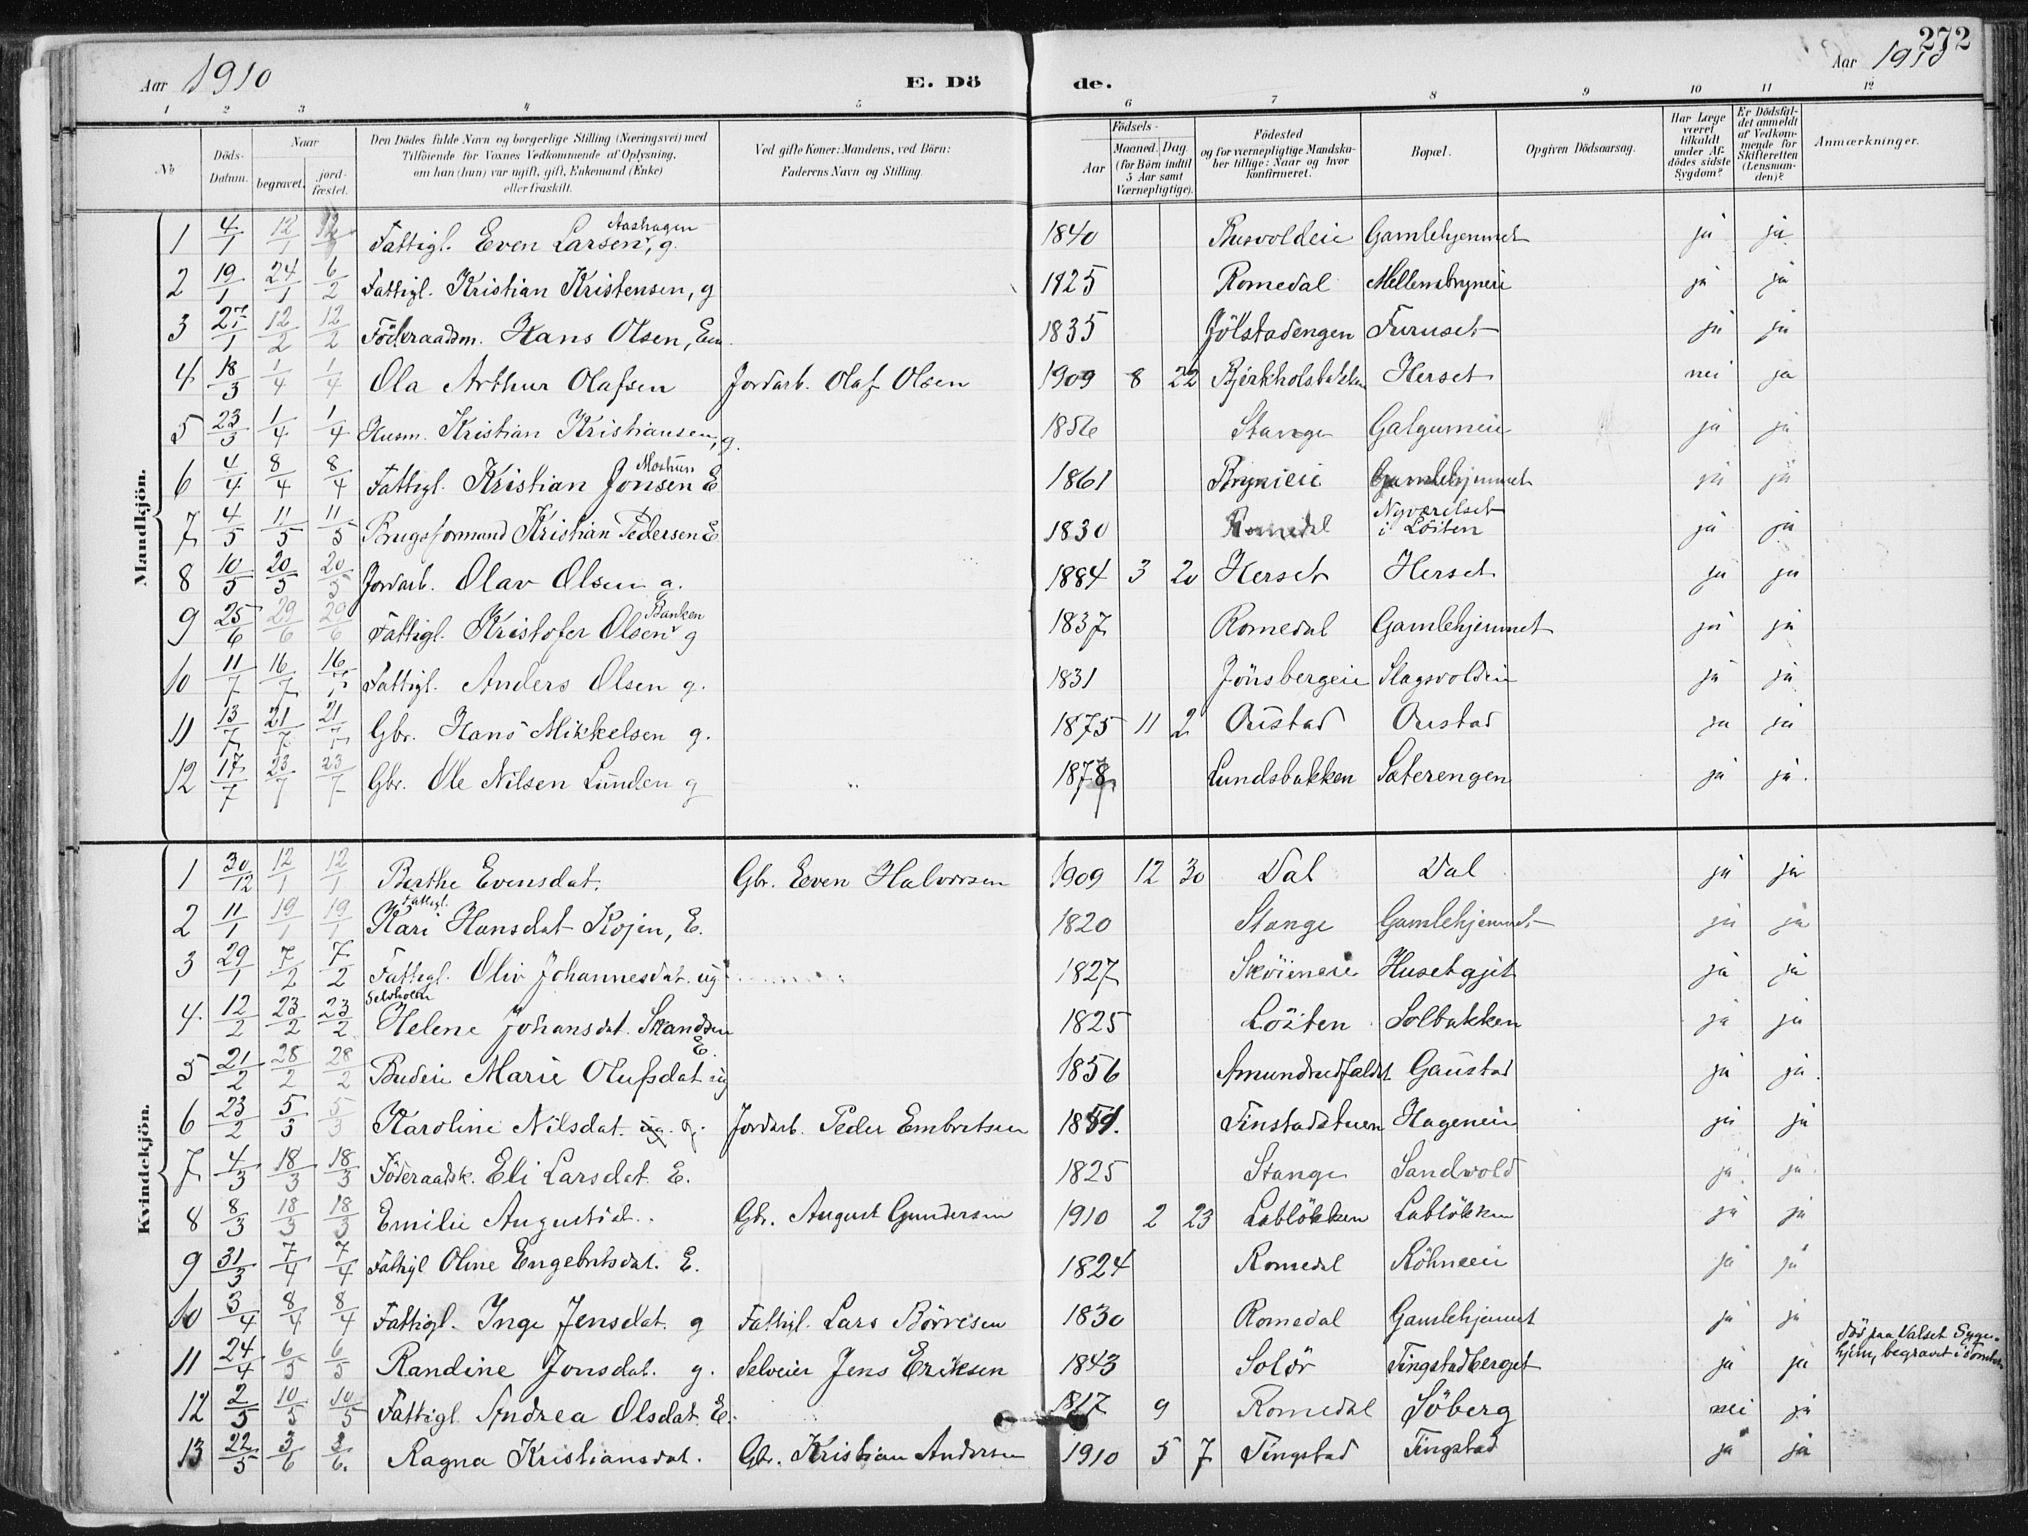 272
Aar 1910 E. Dö de. Aar 1910
1 2 3 4 5 6 7 8 9 10 11 12
No Döds-Datum. Naar begravet. jordfæstet. Den Dödes fulde Navn og borgerlige Stilling (Næringsvei) med Tilföiende for Voxnes Vedkommende af Oplysning, om han (hun) var ugift, gift, Enkemand (Enke) eller fraskilt. Ved gifte Koner: Mandens, ved Börn: Faderens Navn og Stilling. Födsels- Aar Maaned. Dag. (for Börn indtil 5 Aar samt Værnepligtige). Födested og for værnepligtige Mandskaber tillige: Naar og hvor konfirmeret. Bopæl. Opgiven Dödsaarsag. Har Læge været tilkaldt under Afdödes sidste Sygdom? Er Dödsfaldet anmeldt af Vedkommende for Skifteretten (Lensmanden)? Anmærkninger.
Mandkjön.
1 4/1 12/1 12/1 Fattigl. Even Larsen Aashagen, g. 1840 Busvoldeie Gamlehjemmet ja ja
2 19/1 24/1 6/2 Fattigl. Kristian Kristensen, g 1825 Romedal Mellembryneie ja ja
3 27/1 12/2 12/2 Föderaadsm. Hans Olsen, Em. 1835 Jölstadengen Furuset ja ja
4 18/3 1/4 1/4 Ola Arthur Olafsen Jordarb. Olaf Olsen 1909 8 22 Bjerkholsbakken Herset nei ja
5 23/3 1/4 1/4 Husm. Kristian Kristiansen, g. 1856 Stange Galgumeie ja ja
6 4/4 8/4 8/4 Fattigl. Kristian Jonsen Moshun E 1861 Brynieie Gamlehjemmet ja ja
7 4/5 11/5 11/5 Brugsformand Kristian Pedersen E 1830 Romedal Nyværelset i Löiten ja ja
8 10/5 20/5 20/5 Jordarb. Olav Olsen g. 1884 3 20 Herset Herset ja ja
9 25/6 29/6 29/6 Fattigl. Kristofer Olsen Banken g 1837 Romedal Gamlehjemmet ja ja
10 11/7 16/7 16/7 Fattigl. Anders Olsen g. 1831 Jönsbergeie Slagsvoldeie ja ja
11 13/7 21/7 21/7 Gbr. Hans Mikkelsen g. 1875 11 2 Oustad Oustad ja ja
12 17/7 23/7 23/7 Gbr. Ole Nilsen Lunden g 1878 Lundsbakken Sæterengen ja ja.
Kvindekjön.
1 30/12 12/1 12/1 Berthe Evensdat. Gbr. Even Halvorsen 1909 12 30 Dal Dal ja ja
2 11/1 19/1 19/1 Fattigl. Kari Hansdat Kojen, E. 1820 Stange Gamlehjemmet ja ja
3 29/1 7/2 7/2 Fattigl. Oliv Johannesdat. ug 1827 Sköieneie Husetgjet ja ja
4. 12/2 23/2 23/2 Selvholden Helene Johansdat. Skandsen E. 1825 Löiten Solbakken ja ja
5 21/2 28/2 28/2 Budeie Marie Olufsdat ug 1856 Amundrudfaldet Gaustad ja ja.
6 23/2 5/3 5/3 Karoline Nilsdat. ug. g. Jordarb. Peder Embretsen 1851. Tinstadstuen Hageneie ja ja
7 4/3 18/3 18/3 Föderaadsk. Eli Larsdat. E. 1825 Stange Sandvold ja ja.
8 8/3 18/3 18/3 Emilie Augustdat. Gbr. August Gundersen 1910 2 23 Lablökken Lablökken ja ja
9 31/3 7/4 7/4 Fattigl Oline Engebretsdat. E. 1824 Romedal Röhneeie ja ja
10 3/4 8/4 8/4 Fattigl. Inge Jensdat. g Fattigl. Lars Börresen 1830 Romedal Gamlehjemmet ja ja
11 24/4 6/5 6/5 Randine Jonsdat. g. Selveier Jens Eriksen 1843 Solör Tingstadberget ja ja Död paa Valset Sygehjem, begravet i
12 2/5 10/5 10/5 Fattigl. Andrea Olsdat. E. 1827 9 Romedal Söberg nei ja
13 22/5 3/6 3/6. Ragna Kristiansdat. Gbr. Kristian Andersen 1910 5 7 Tingstad Tingstad ja ja